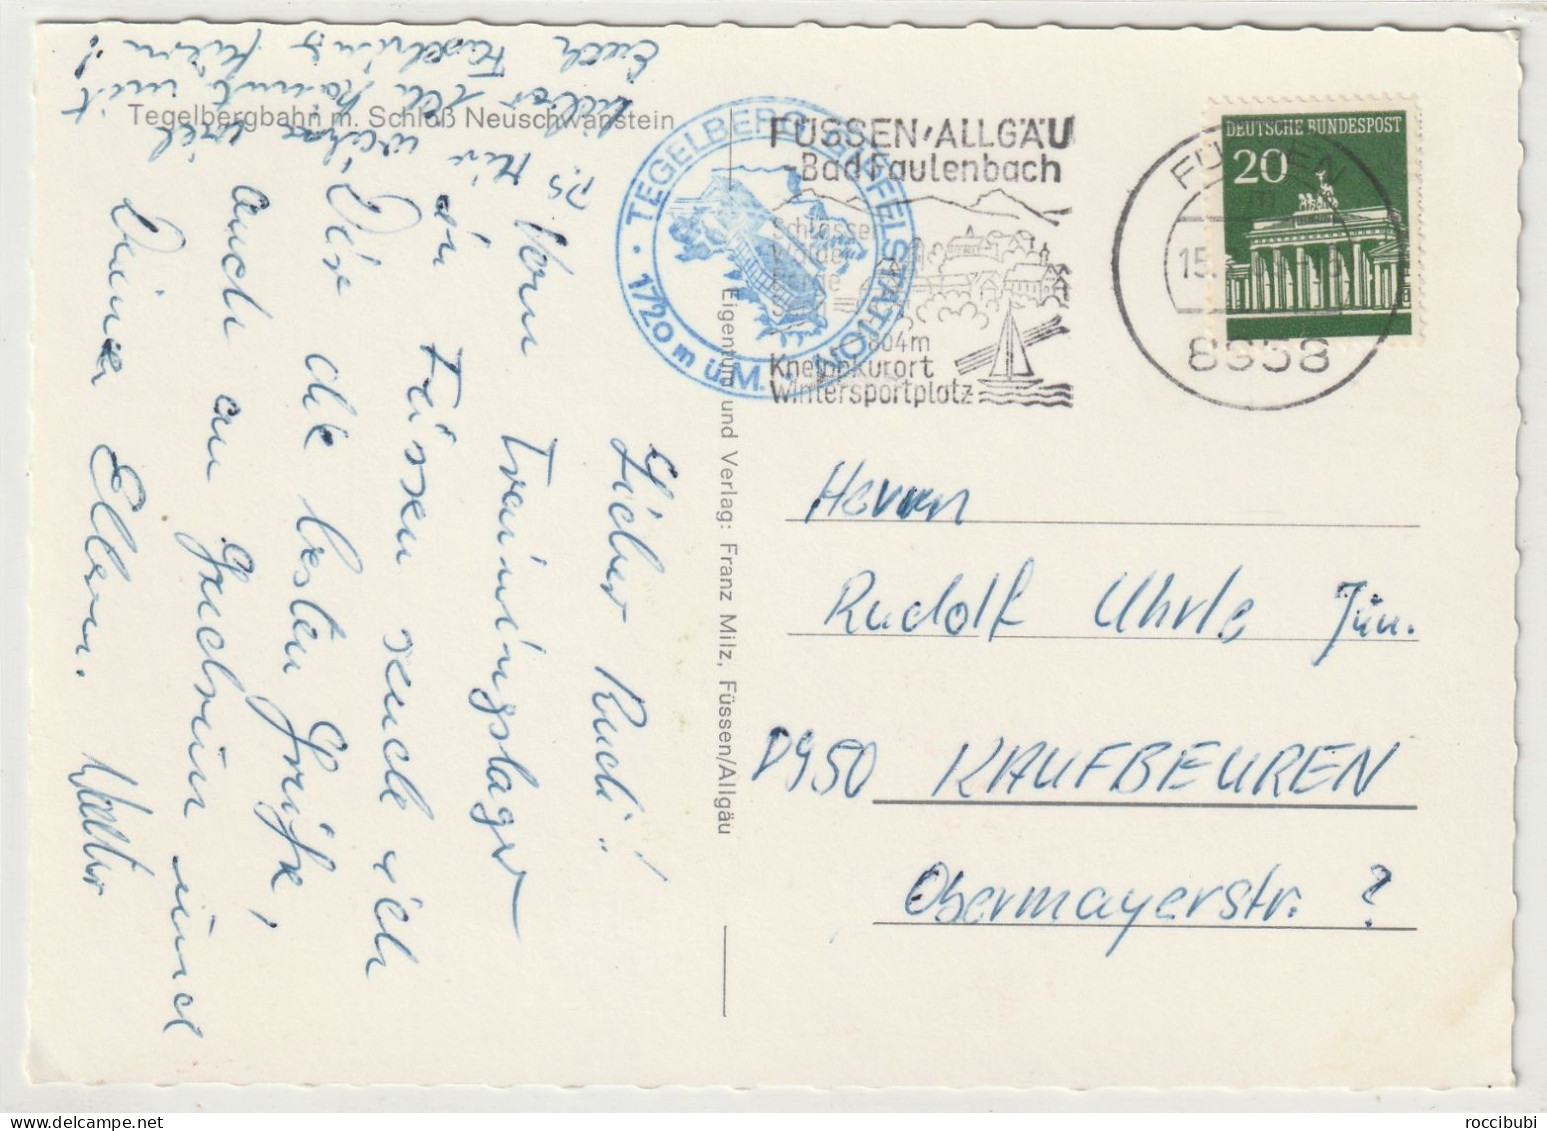 Tegelbergbahn m. Schloß Neuschwanstein
Lieber Rudi!
Vom Trainingslager
in Füssen sende ich
Dir die besten Grüße,
auch an Gudrun und
Deine Eltern. Walter
P.S. Wir
Euch Fasching
mit!
Eigentum und Verlag: Franz Milz, Füssen/Allgäu
TEGELBERG GIPFELSTATION
1720 m ü.M.
FÜSSEN/ALLGÄU
Bad Faulenbach
Schlösser
Wälder
804m
Kneippkurort
Wintersportplatz
FÜSSEN
15.
8958
DEUTSCHE BUNDESPOST
20
Herrn
Rudolf Uhrle Jun.
D8950 KAUFBEUREN
Obermayerstr. ?
roccibubi
www.delcampe.net